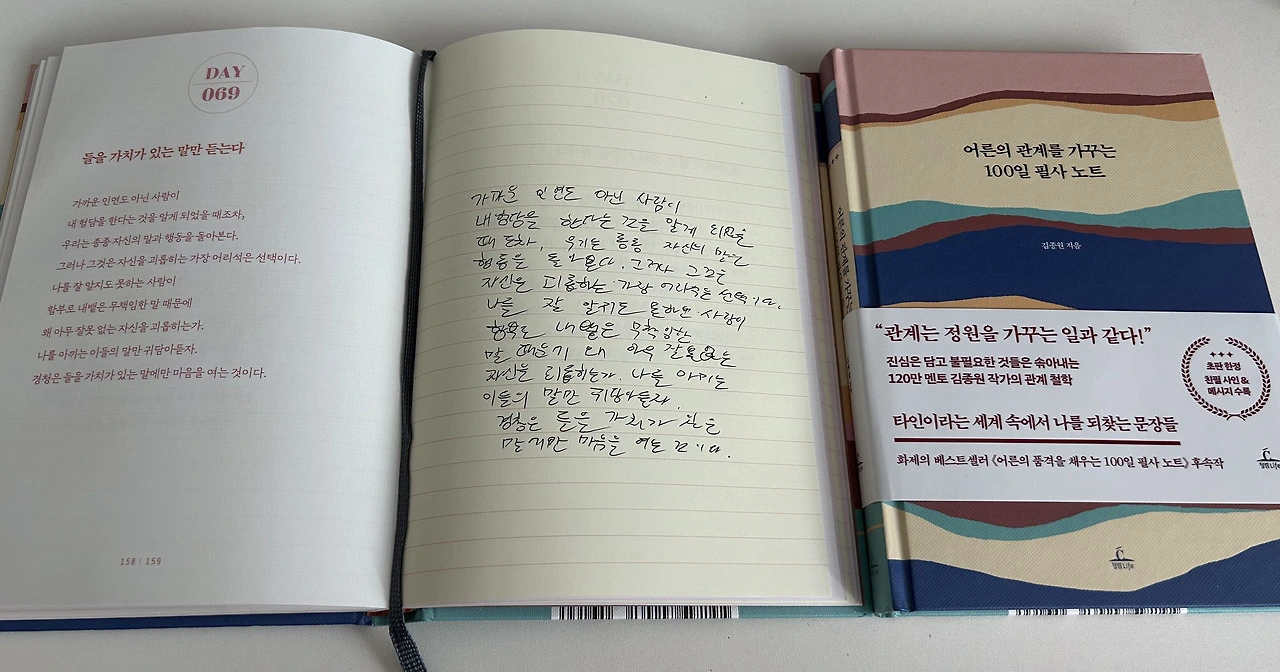 DAY
069
들을 가치가 있는 말만 듣는다
가까운 인연도 아닌 사람이
내 험담을 한다는 것을 알게 되었을 때조차,
우리는 종종 자신의 말과 행동을 돌아본다.
그러나 그것은 자신을 괴롭히는 가장 어리석은 선택이다.
나를 잘 알지도 못하는 사람이
함부로 내뱉은 무책임한 말 때문에
왜 아무 잘못 없는 자신을 괴롭히는가.
나를 아끼는 이들의 말만 귀담아듣자.
경청은 들을 가치가 있는 말에만 마음을 여는 것이다.
158 | 159
가까운 인연도 아닌 사람이
내 험담을 한다는 것을 알게 되었을
때 조차, 우리는 종종 자신의 말과
행동을 돌아본다. 그러나 그것은
자신을 괴롭히는 가장 어리석은 선택이다.
나를 잘 알지도 못하는 사람이
함부로 내뱉은 무책임한
말 때문에 왜 아무 잘못없는
자신을 괴롭히는가. 나를 아끼는
이들의 말만 귀담아듣자.
경청은 들을 가치가 있는
말에만 마음을 여는 것이다.
어른의 관계를 가꾸는
100일 필사 노트
김종원 지음
“관계는 정원을 가꾸는 일과 같다!”
진심은 담고 불필요한 것들은 솎아내는
120만 멘토 김종원 작가의 관계 철학
초판 한정
친필 사인 &
메시지 수록
타인이라는 세계 속에서 나를 되찾는 문장들
화제의 베스트셀러 《어른의 품격을 채우는 100일 필사 노트》 후속작
청림Life
청림Life